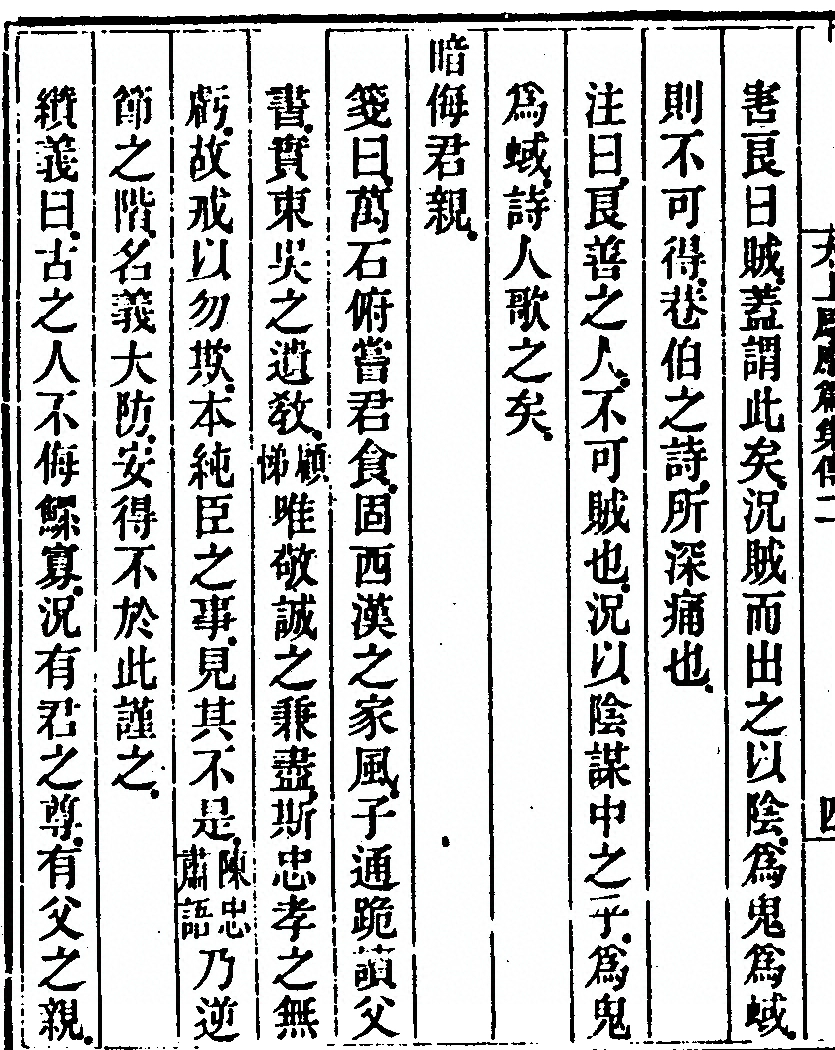 太上感應篇集傳二
四
害良曰賊。蓋謂此矣。況賊而出之以陰。爲鬼爲蜮。
則不可得。巷伯之詩。所深痛也。
注曰。良善之人。不可賊也。況以陰謀中之乎。爲鬼
爲蜮。詩人歌之矣。
暗侮君親。
箋曰。萬石俯嘗君食。固西漢之家風。子通跪讀父
書。實東吳之遺敎。顧悌唯敬誠之兼盡。斯忠孝之無
虧。故戒以勿欺。本純臣之事。見其不是。陳忠肅語乃逆
節之階。名義大防。安得不於此謹之。
纘義曰。古之人不侮鰥寡。況有君之尊。有父之親。